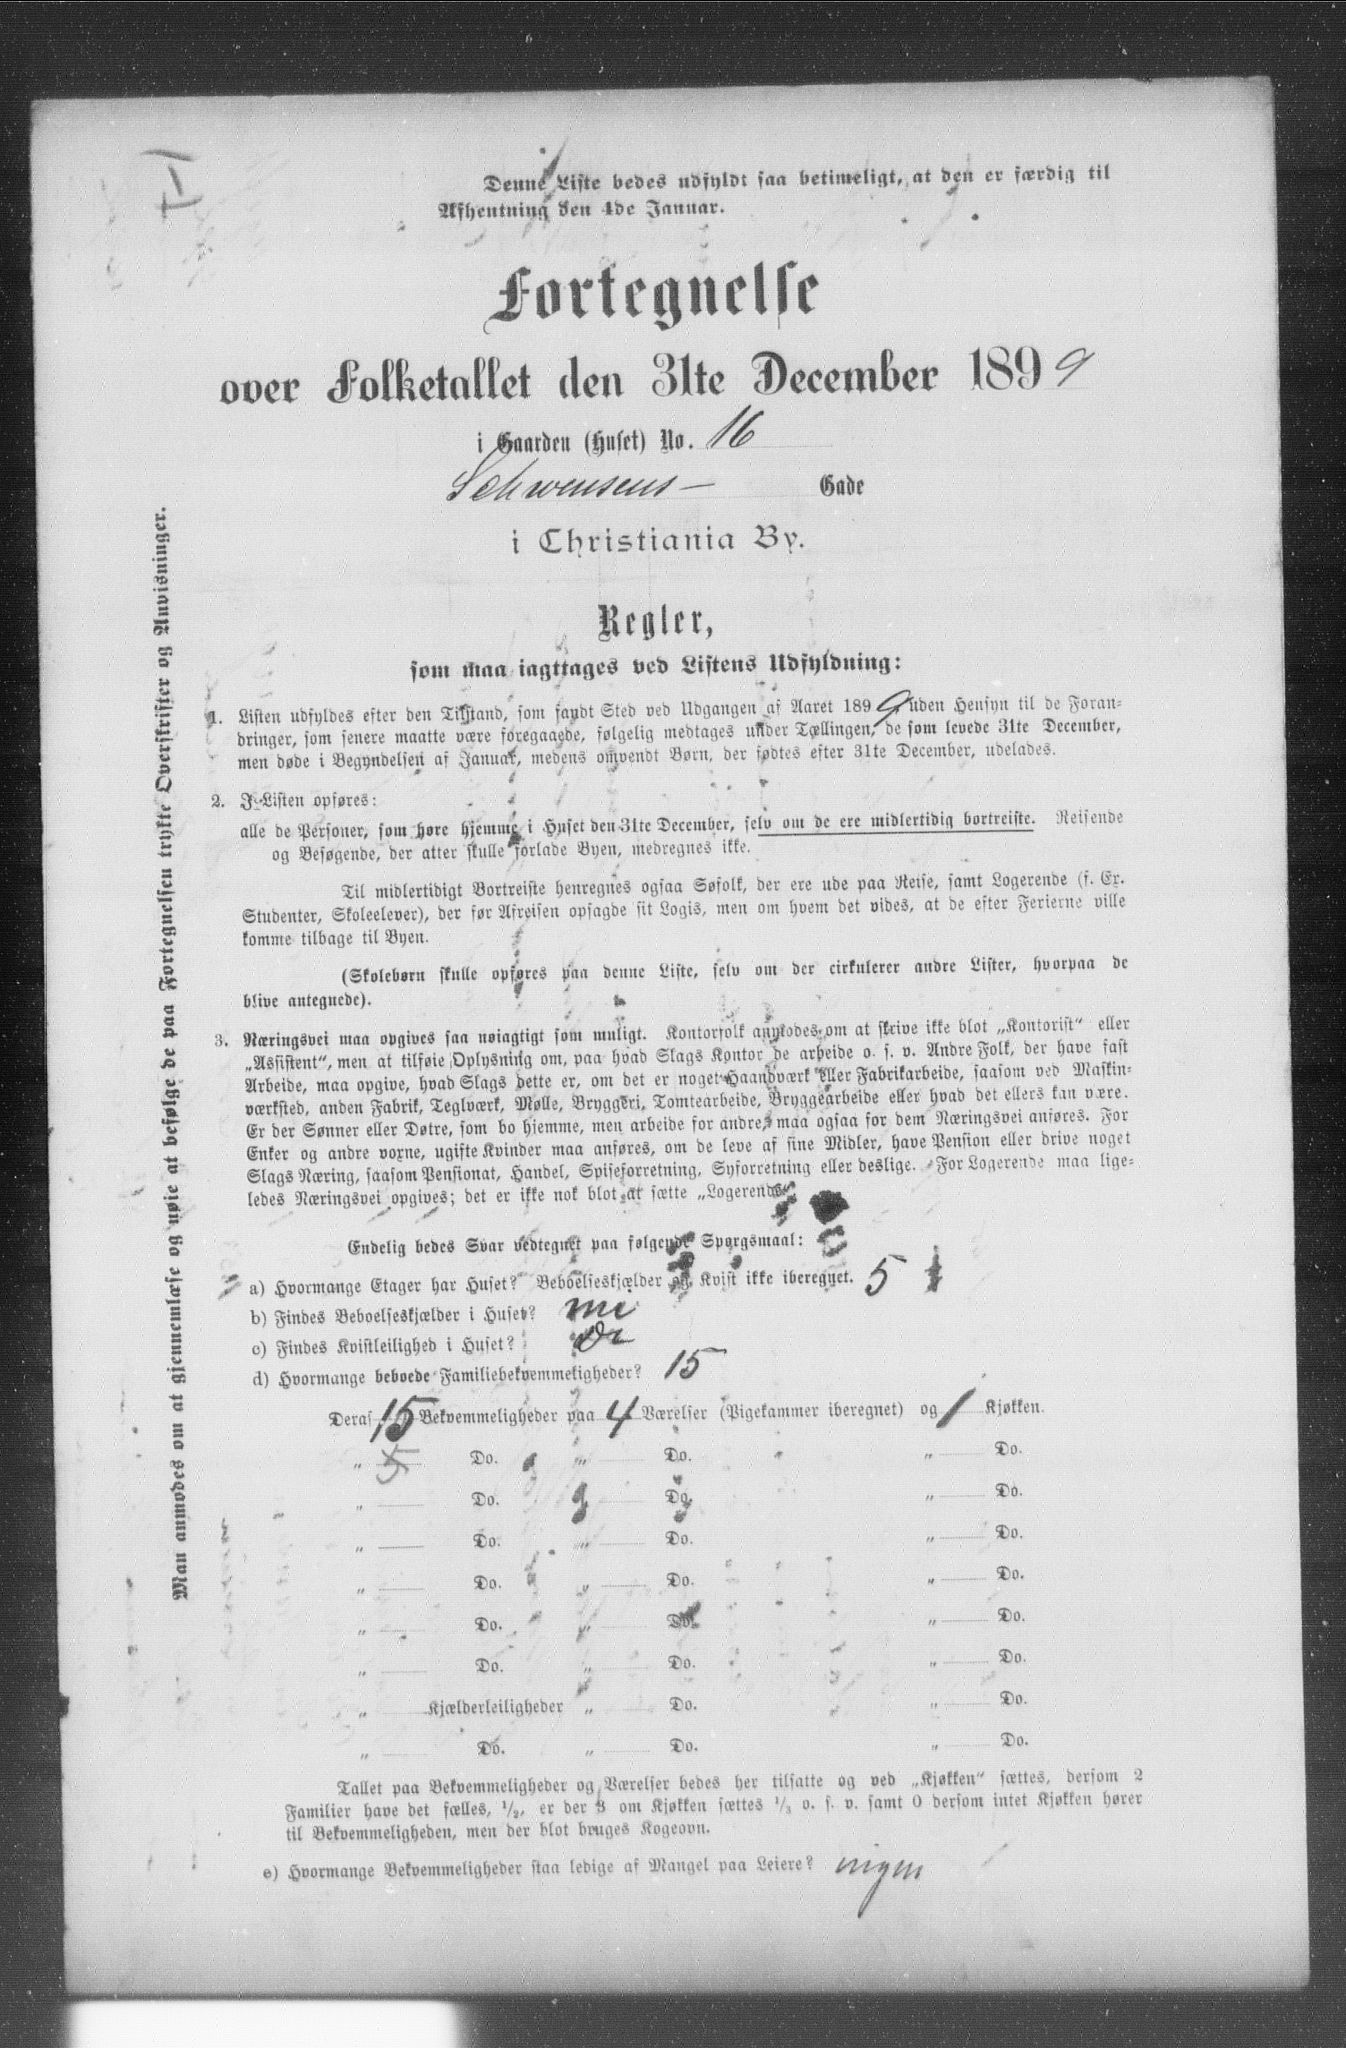 I
Denne Liste bedes udfyldt saa betimeligt, at den er færdig til
Afhentning den 4de Januar.
Fortegnelse
over Folketallet den 31te December 1899
i Gaarden (Huset) No. 16
Schwensens- Gade
i Christiania By.
Regler,
som maa iagttages ved Listens Udfyldning:
1. Listen udfyldes efter den Tilstand, som fandt Sted ved Udgangen af Aaret 1899, uden Hensyn til de Foran-
dringer, som senere maatte være foregaaede, følgelig medtages under Tællingen, de som levede 31te December,
men døde i Begyndelsen af Januar, medens omvendt Børn, der fødtes efter 31te December, udelades.
2. I Listen opføres:
alle de Personer, som høre hjemme i Huset den 31te December, selv om de ere midlertidig bortreiste. Reisende
og Besøgende, der atter skulle forlade Byen, medregnes ikke.
Til midlertidigt Bortreiste henregnes ogsaa Søfolk, der ere ude paa Reise, samt Logerende (f. Ex.
Studenter, Skoleelever), der før Afreisen opsagde sit Logis, men om hvem det vides, at de efter Ferierne ville
komme tilbage til Byen.
(Skolebørn skulle opføres paa denne Liste, selv om der cirkulerer andre Lister, hvorpaa de
blive antegnede).
3. Næringsvei maa opgives saa nøiagtigt som muligt. Kontorfolk anmodes om at skrive ikke blot „Kontorist“ eller
„Assistent“, men at tilføie Oplysning om, paa hvad Slags Kontor de arbeide o. s. v. Andre Folk, der have fast
Arbeide, maa opgive, hvad Slags dette er, om det er noget Haandværk eller Fabrikarbeide, saasom ved Maskin-
værksted, anden Fabrik, Teglværk, Mølle, Bryggeri, Tomtearbeide, Bryggearbeide eller hvad det ellers kan være.
Er der Sønner eller Døtre, som bo hjemme, men arbeide for andre, maa ogsaa for dem Næringsvei anføres. For
Enker og andre voxne, ugifte Kvinder maa anføres, om de leve af sine Midler, have Pension eller drive noget
Slags Næring, saasom Pensionat, Handel, Spiseforretning, Syforretning eller deslige. For Logerende maa lige-
ledes Næringsvei opgives; det er ikke nok blot at sætte „Logerende“.
Endelig bedes Svar vedtegnet paa følgende Spørgsmaal:
a) Hvormange Etager har Huset? Beboelseskjælder og Kvist ikke iberegnet. 5
b) Findes Beboelseskjælder i Huset?
c) Findes Kvistleilighed i Huset? Do
d) Hvormange beboede Familiebekvemmeligheder? 15
Deraf 15 Bekvemmeligheder paa 4 Værelser (Pigekammer iberegnet) og 1 Kjøkken.
„ 5 Do. „ Do. „ Do.
„ Do. „ Do. „ Do.
„ Do. „ Do. „ Do.
„ Do. „ Do. „ Do.
„ Do. „ Do. „ Do.
„ Do. „ Do. „ Do.
„ Kjælderleiligheder „ Do. „ Do.
„ Do. „ Do. „ Do.
Tallet paa Bekvemmeligheder og Værelser bedes her tilsatte og ved „Kjøkken“ sættes, dersom 2
Familier have det fælles, 1/2, er der 3 om Kjøkken sættes 1/3 o. s. v. samt 0 dersom intet Kjøkken hører
til Bekvemmeligheden, men der blot bruges Kogeovn.
e) Hvormange Bekvemmeligheder staa ledige af Mangel paa Leiere? ingen
Man anmodes om at gjennemlæse og nøie at befølge de paa Fortegnelsen trykte Overskrifter og Anvisninger.